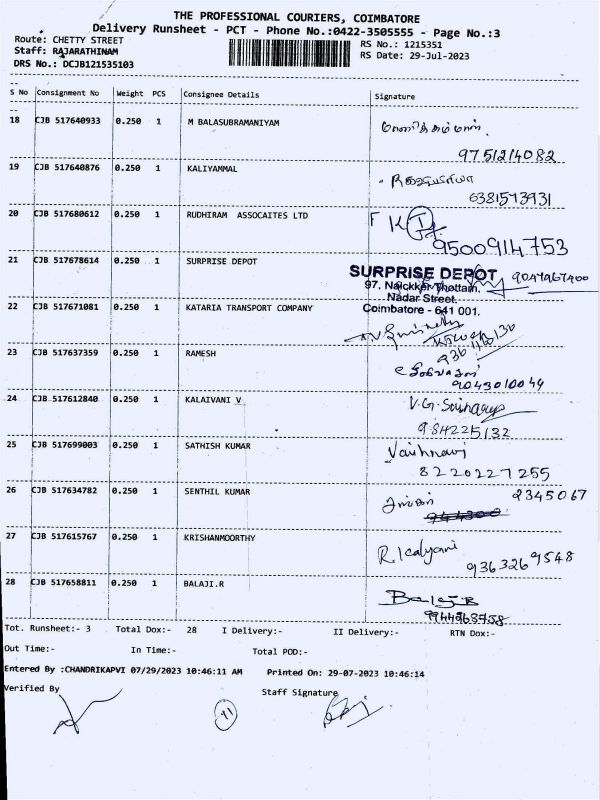 THE PROFESSIONAL COURIERS, COIMBATORE
Delivery Runsheet - PCT - Phone No.:0422-3505555 - Page No.:3
Route: CHETTY STREET
RS No.: 1215351
Staff: RAJARATHINAM
RS Date: 29-Jul-2023
DRS No.: DCJB121535103
S No Consignment No Weight PCS Consignee Details Signature
18 CJB 517640933 0.250 1 M BALASUBRAMANIYAM
9751214082
19 CJB 517640876 0.250 1 KALIYAMMAL
6381573931
20 CJB 517680612 0.250 1 RUDHIRAM ASSOCAITES LTD
9500914753
21 CJB 517678614 0.250 1 SURPRISE DEPOT
SURPRISE DEPOT
97, Naickker Thottam,
Nadar Street,
Coimbatore - 641 001.
22 CJB 517671081 0.250 1 KATARIA TRANSPORT COMPANY
23 CJB 517637359 0.250 1 RAMESH
9043010044
24 CJB 517612840 0.250 1 KALAIVANI V
984225132
25 CJB 517699003 0.250 1 SATHISH KUMAR Vaishnavi
8220227255
26 CJB 517634782 0.250 1 SENTHIL KUMAR
9345067
27 CJB 517615767 0.250 1 KRISHANMOORTHY R. Kalyani
9363269548
28 CJB 517658811 0.250 1 BALAJI.R Balaji R
9944968758
Tot. Runsheet:- 3 Total Dox:- 28 I Delivery:- II Delivery:- RTN Dox:-
Out Time:- In Time:- Total POD:-
Entered By :CHANDRIKAPVI 07/29/2023 10:46:11 AM Printed On: 29-07-2023 10:46:14
Verified By Staff Signature